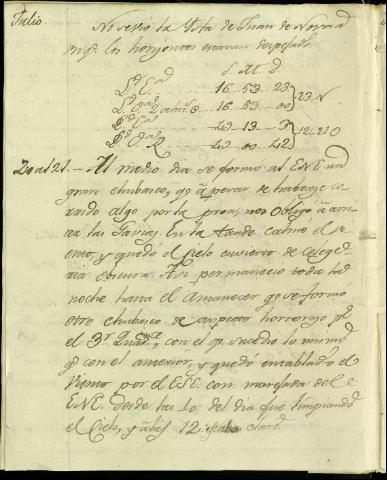 Julio.
No se vio la Ysta de Juan de Nova
los horizontes estavan despejados.
S. M. D.
16 - 53 - 23
16 - 53 - 00 } 23 N
43 - 13 - 3
43 - 00 - 42 } 12 - 21 O
20 al 21. - Al medio dia se formó al ENE un
gran chubasco, qe. á pesar de haberse co-
rrido algo por la proa, nos obligó á arri-
ar las Gavias. En la tarde calmó el vi-
ento, y quedó el Cielo cuvierto de
obscura. Asi permaneció toda la
noche hasta el Amanecer qe. se formó
otro chubasco de aspecto horroroso pr.
el 3r. con el qe. sucedio lo mismo
qe. con el anterior, y quedó entablado el
Viento por el ESE con marejada del
ENE. desde las 10. del dia fue limpiando
el Cielo, y á las 12 claro.